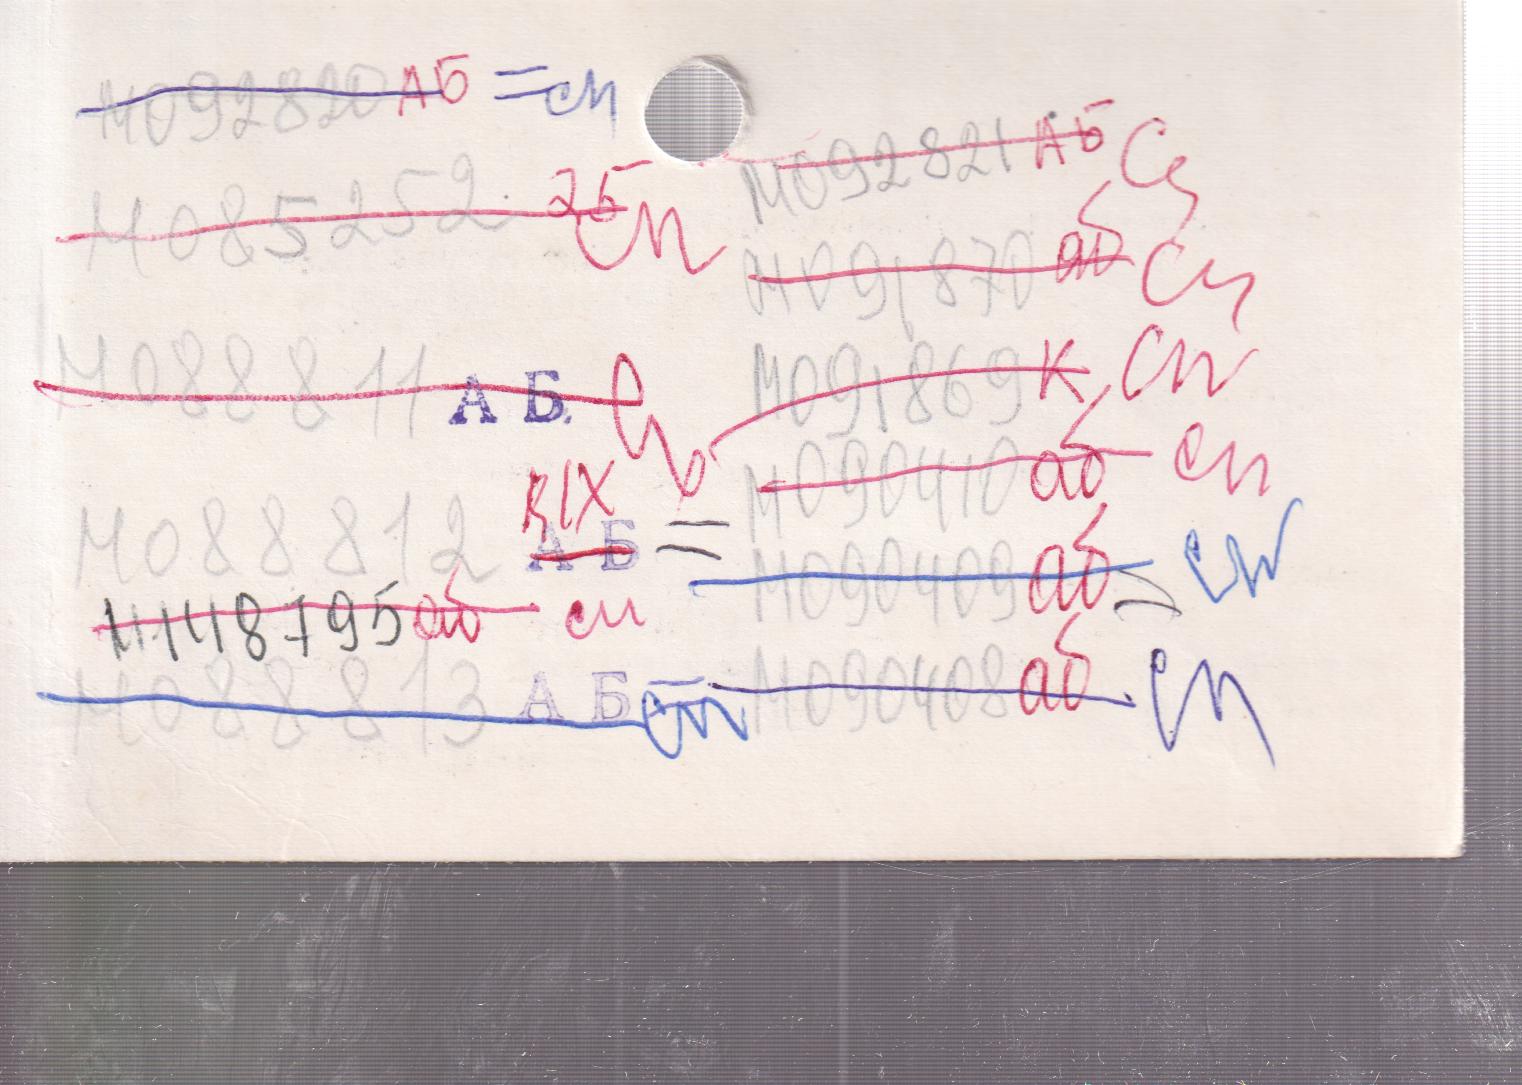 М092820 АБ = сп
М085252 2Б сп
М088811 А Б.
М088812 А Б =
М148795 аб сп
М088813 А Б сп
М092821 АБ
М091870 аб
М091869 К сп
М090410 аб сп
М090409 аб сп
М090408 аб сп